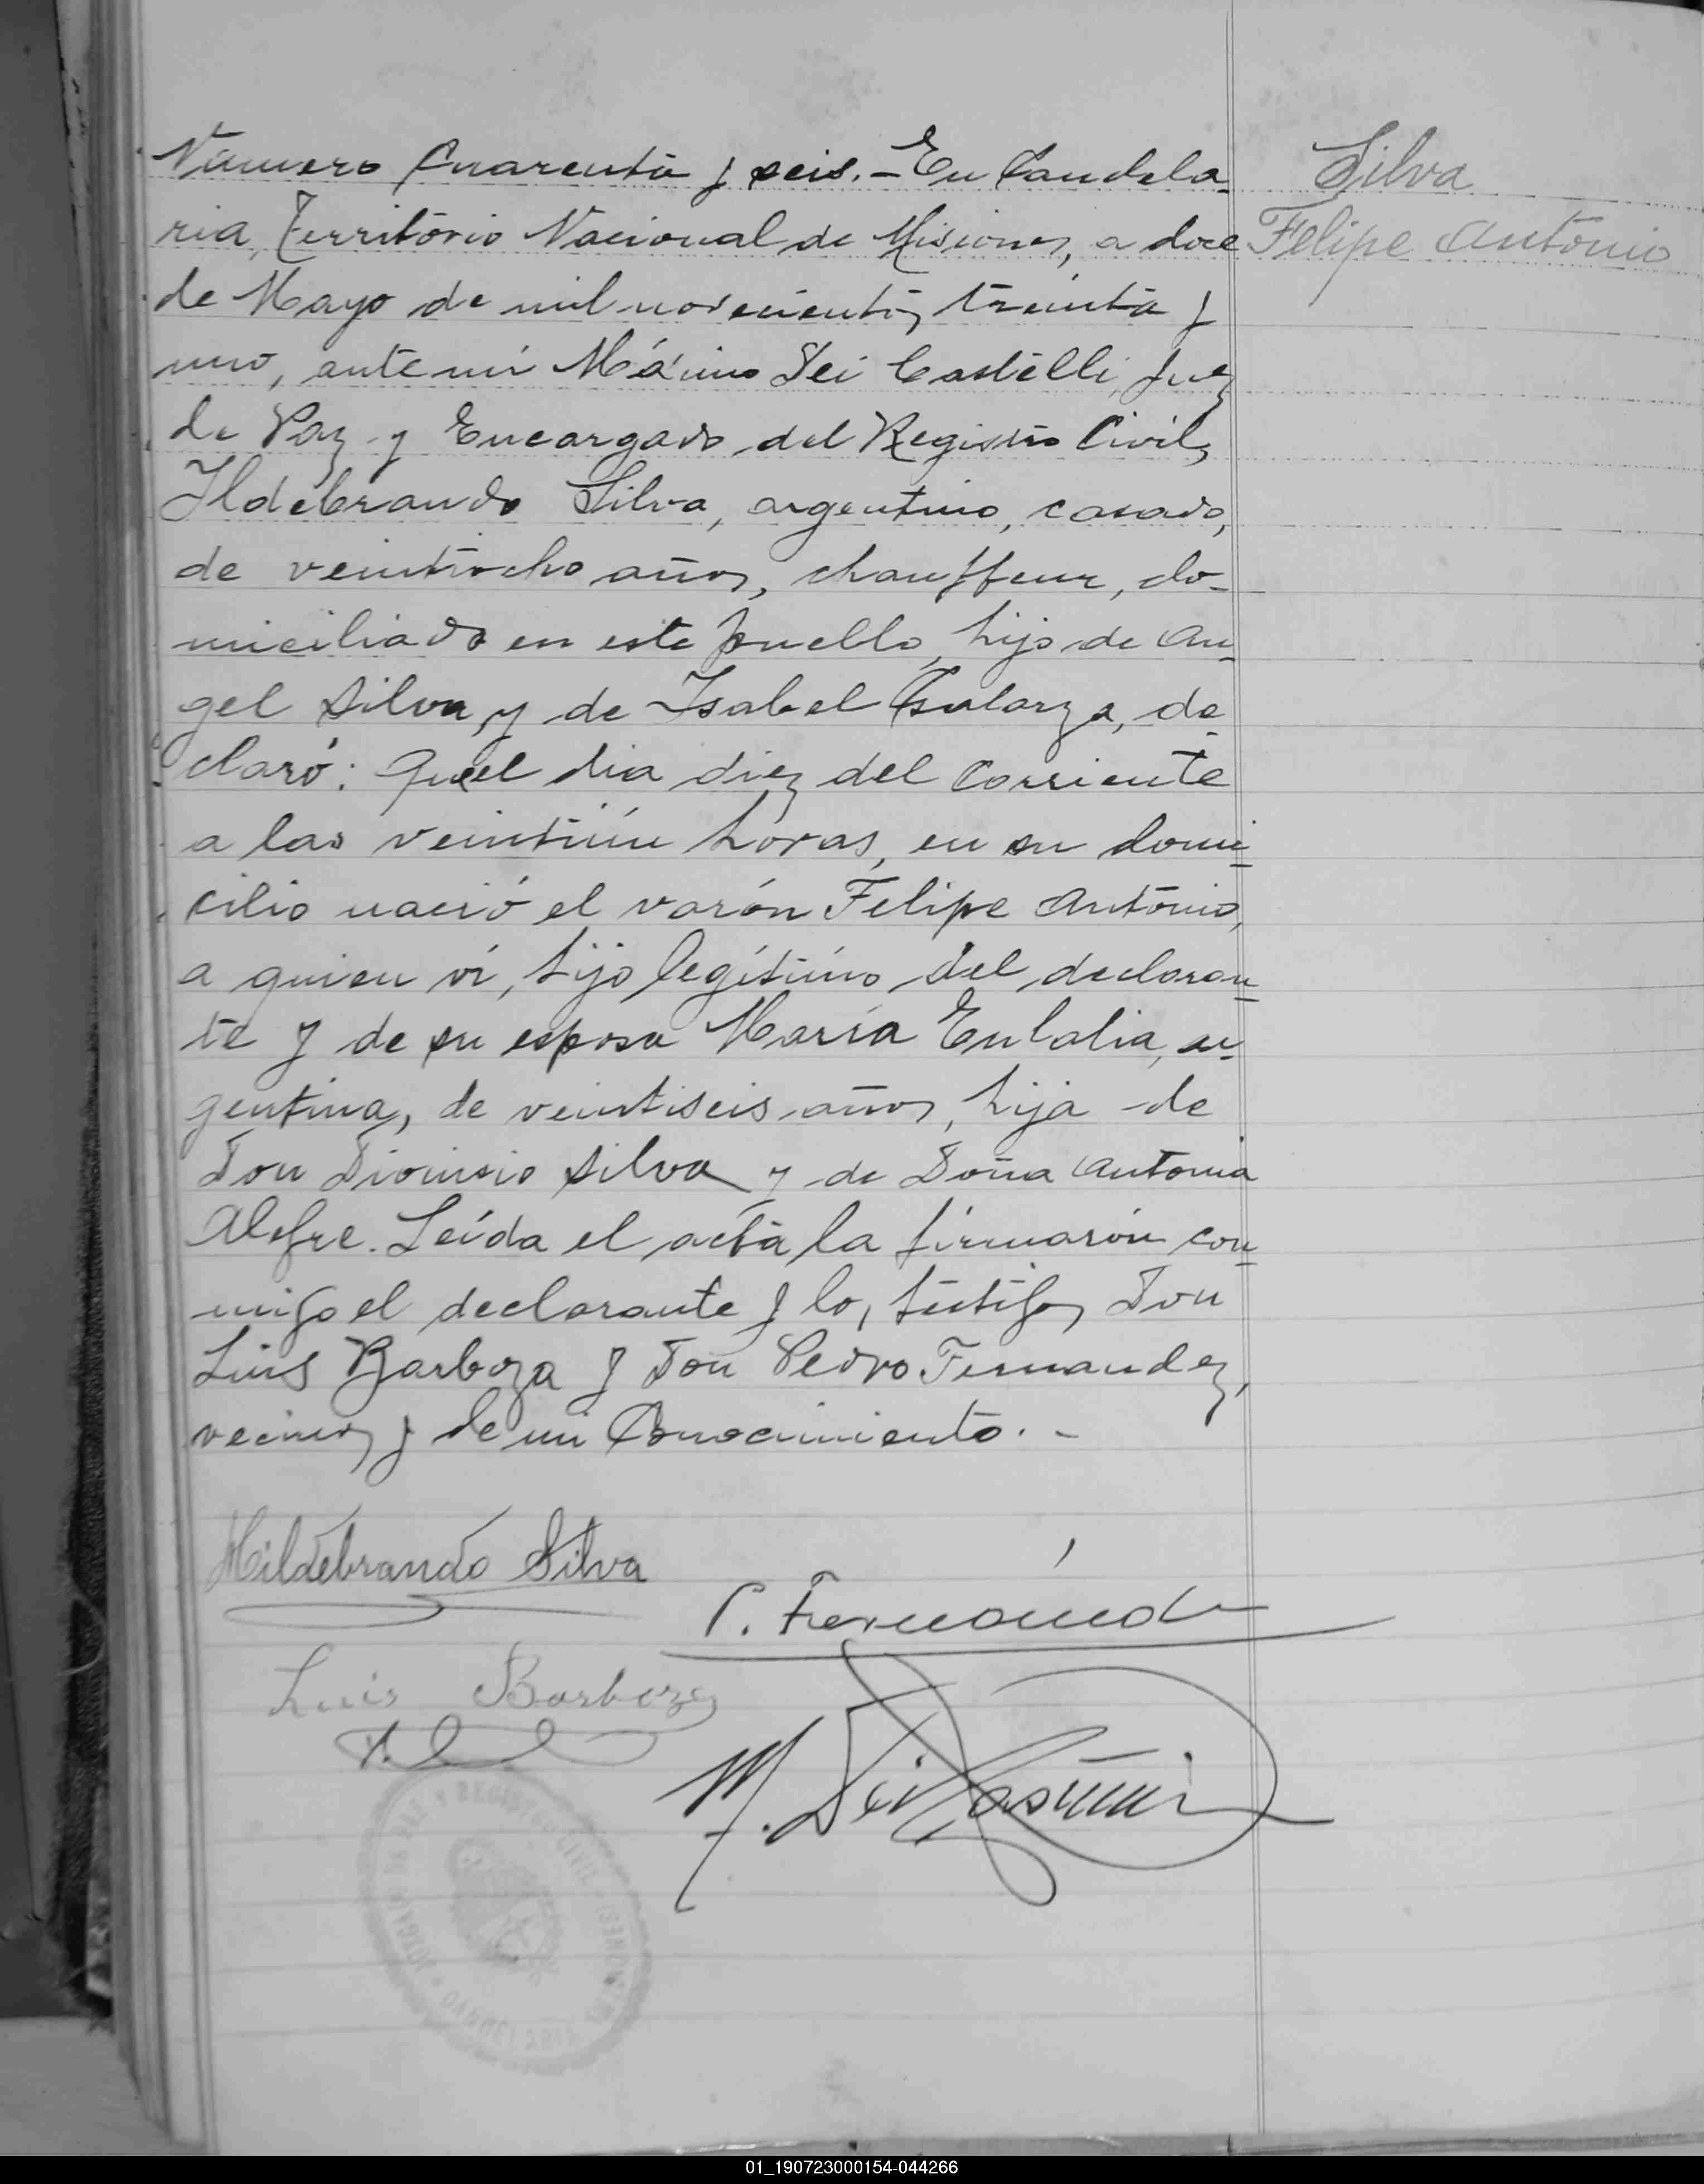 Número Cuarenta y seis.- En Candela-
ria, Territorio Nacional de Misiones, a doce
de Mayo de mil novecientos treinta y
uno, ante mí Máximo Dei Castelli, Juez
de Paz y Encargado del Registro Civil,
Ildebrando Silva, argentino, casado,
de veintiocho años, chauffeur, do-
miciliado en este pueblo, hijo de An-
gel Silva, y de Isabel Galarza, de-
claró: Que el dia diez del corriente
a las veintiún horas, en su domi-
cilio nació el varón Felipe Antonio,
a quien ví, hijo legítimo del declaran-
te y de su esposa María Eulalia, ar-
gentina, de veintiseis años, hija de
Don Dionisio Silva y de Doña Antonia
Alegre. Leída el acta la firmarón con-
migo el declarante y los testigos Don
Luis Barboza y Don Pedro Fernandez,
vecinos y de mi Conocimiento.-
Silva
Felipe Antonio
Hildebrando Silva
P. Fernández
Luis Barboza
M. Dei
JUZGADO DE PAZ Y REGISTRO CIVIL
CANDELARIA (MISIONES)
01_190723000154-044266